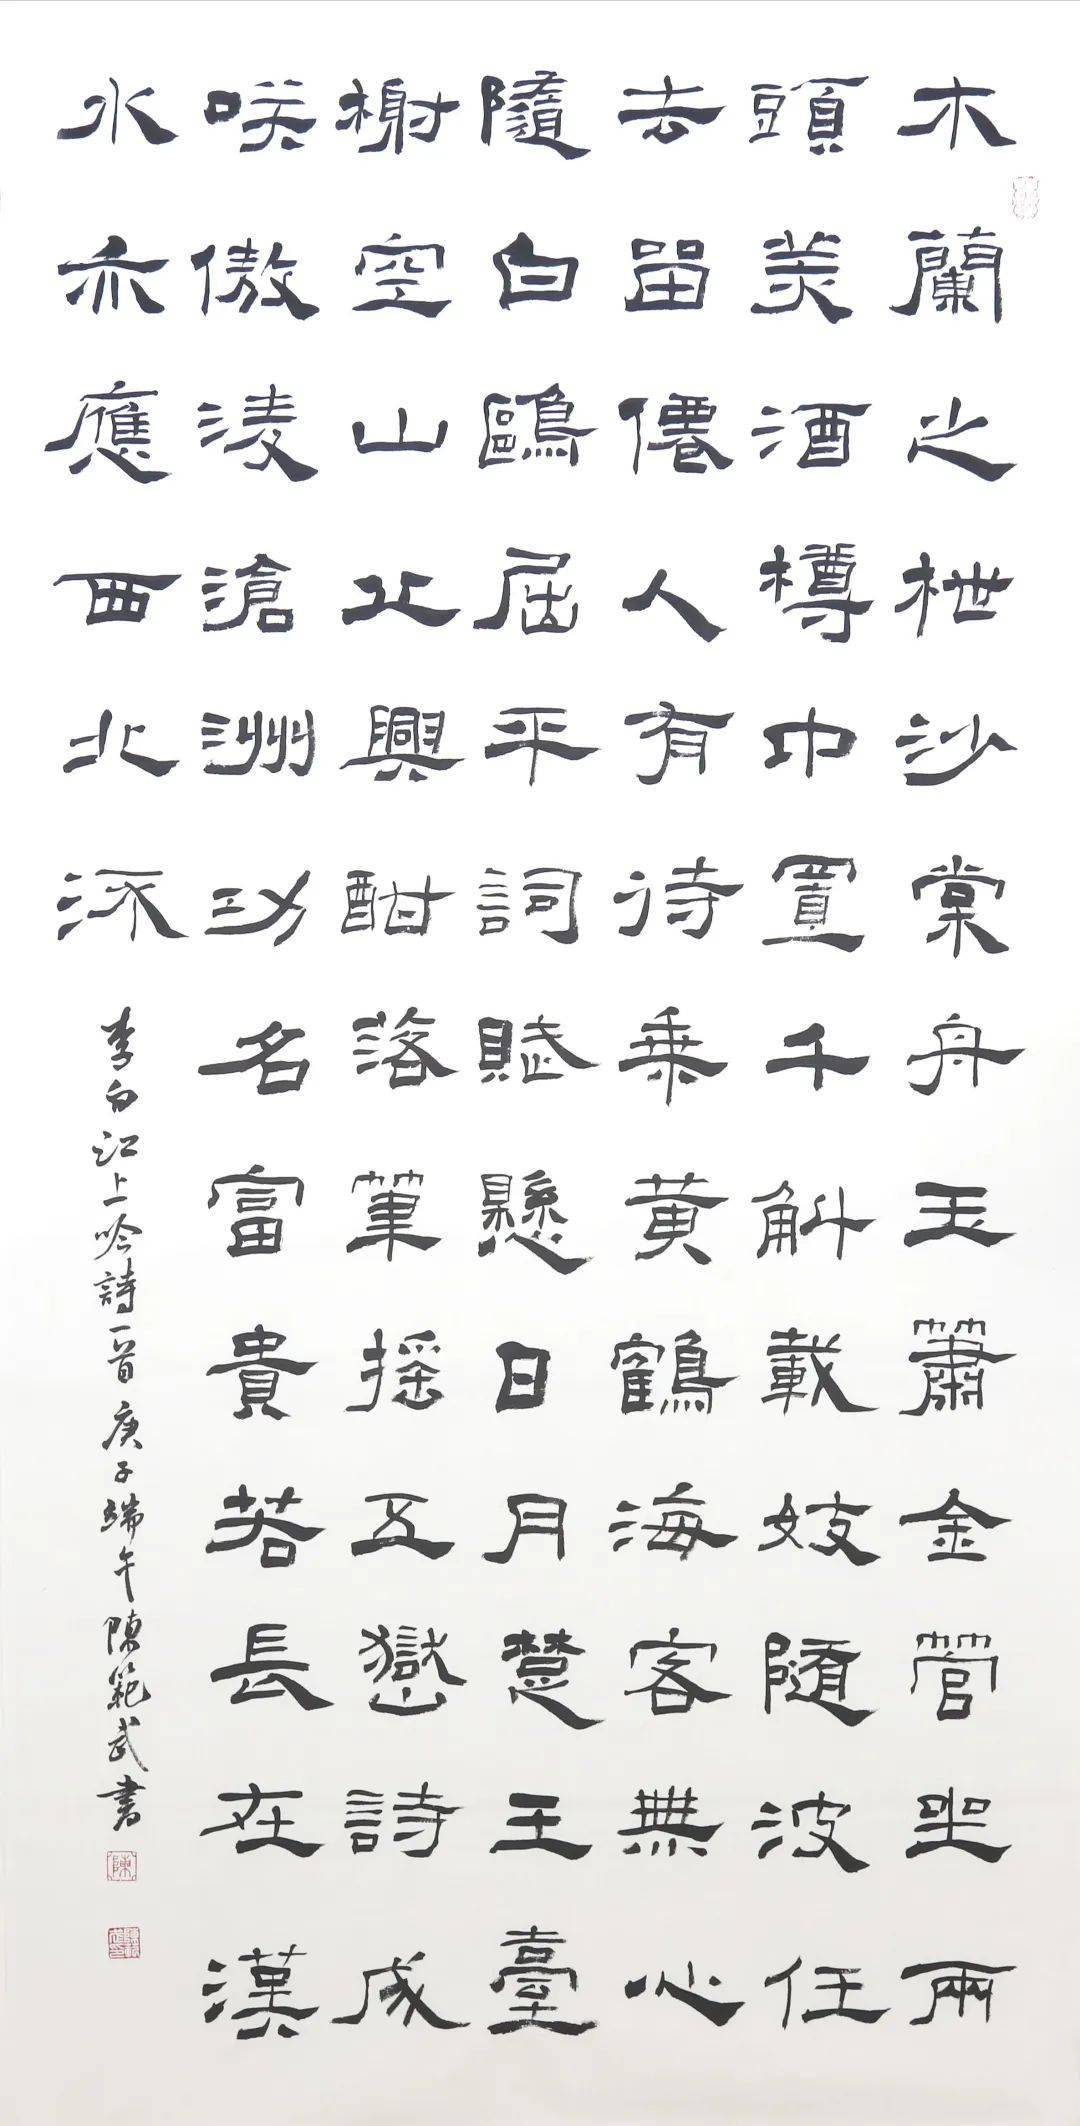 木蘭之枻沙棠舟玉簫金管坐兩
頭美酒樽中置千斛載妓随波任
去留僊人有待乘黄鶴海客無心
隨白鷗屈平詞賦懸日月楚王臺
榭空山丘興酣落筆摇五嶽詩成
咲傲淩滄洲功名富貴若長在漢
水亦應西北流
李白江上吟詩一首 庚子端午陳範武書
陳